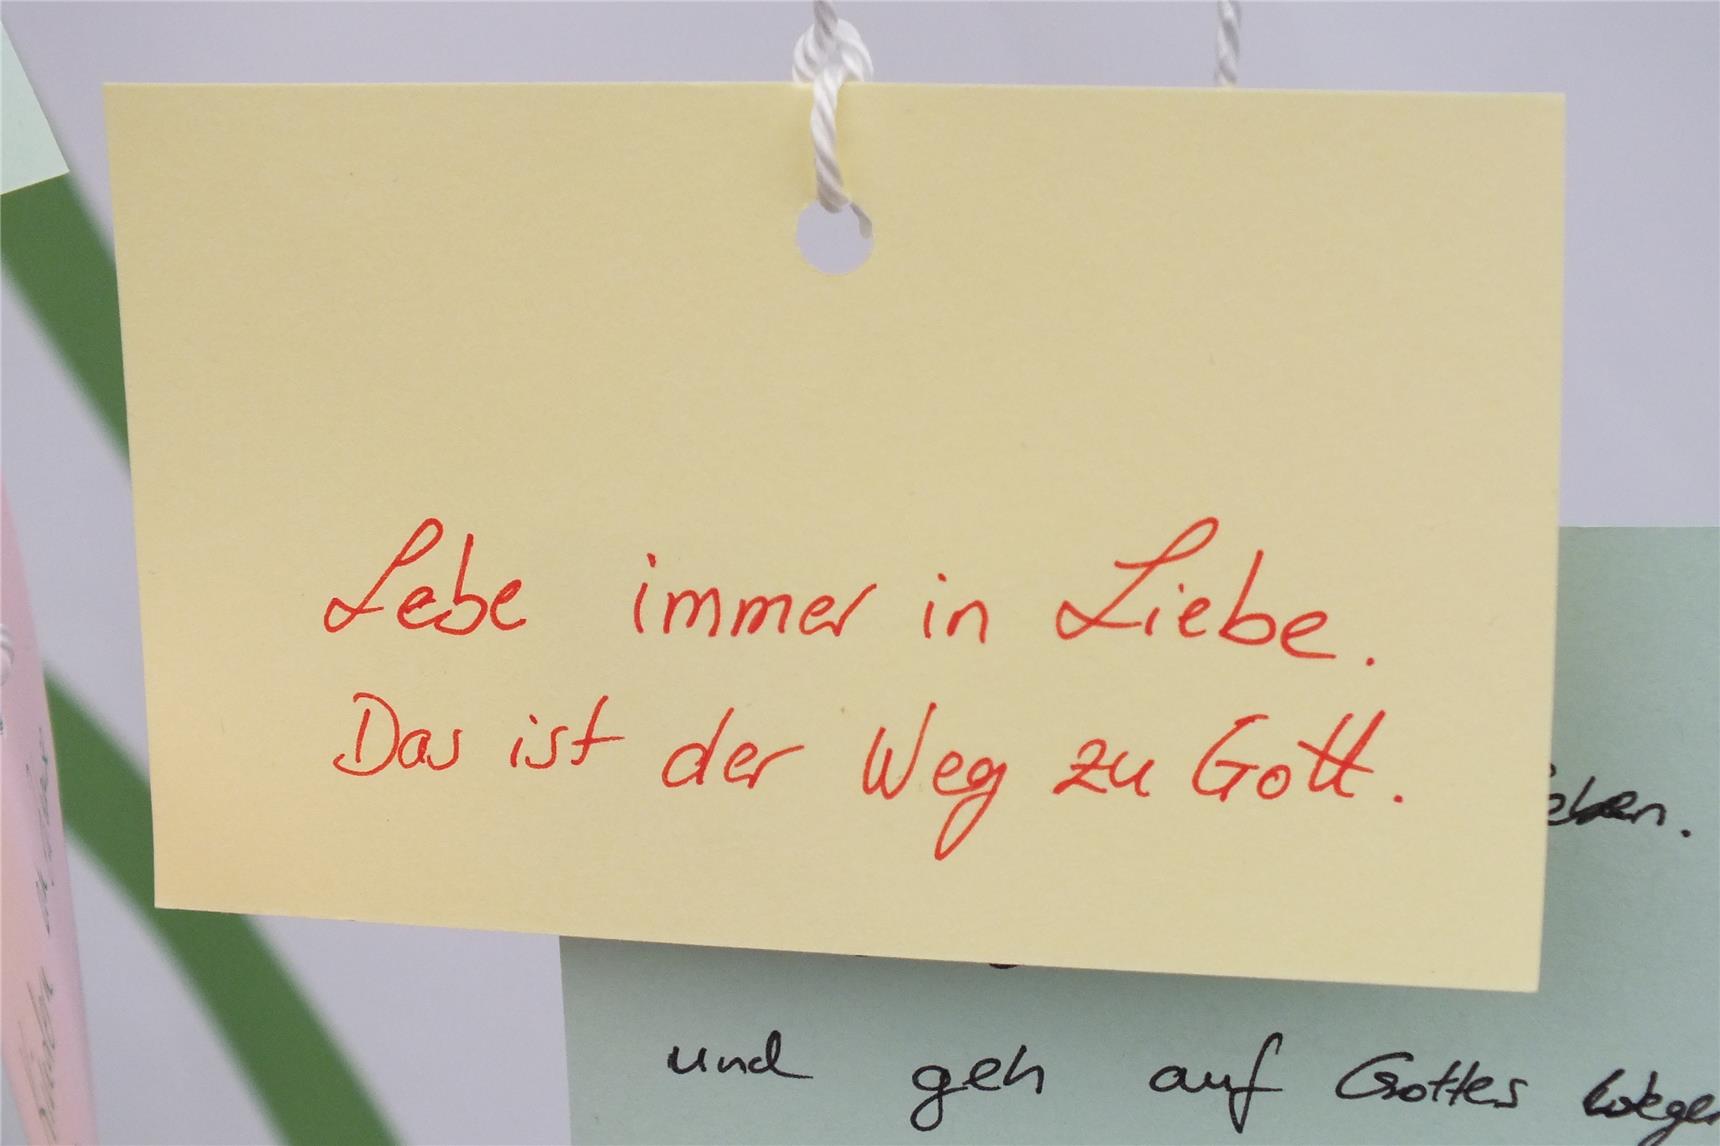 Lebe immer in Liebe.
Das ist der Weg zu Gott.
und geh auf Gottes